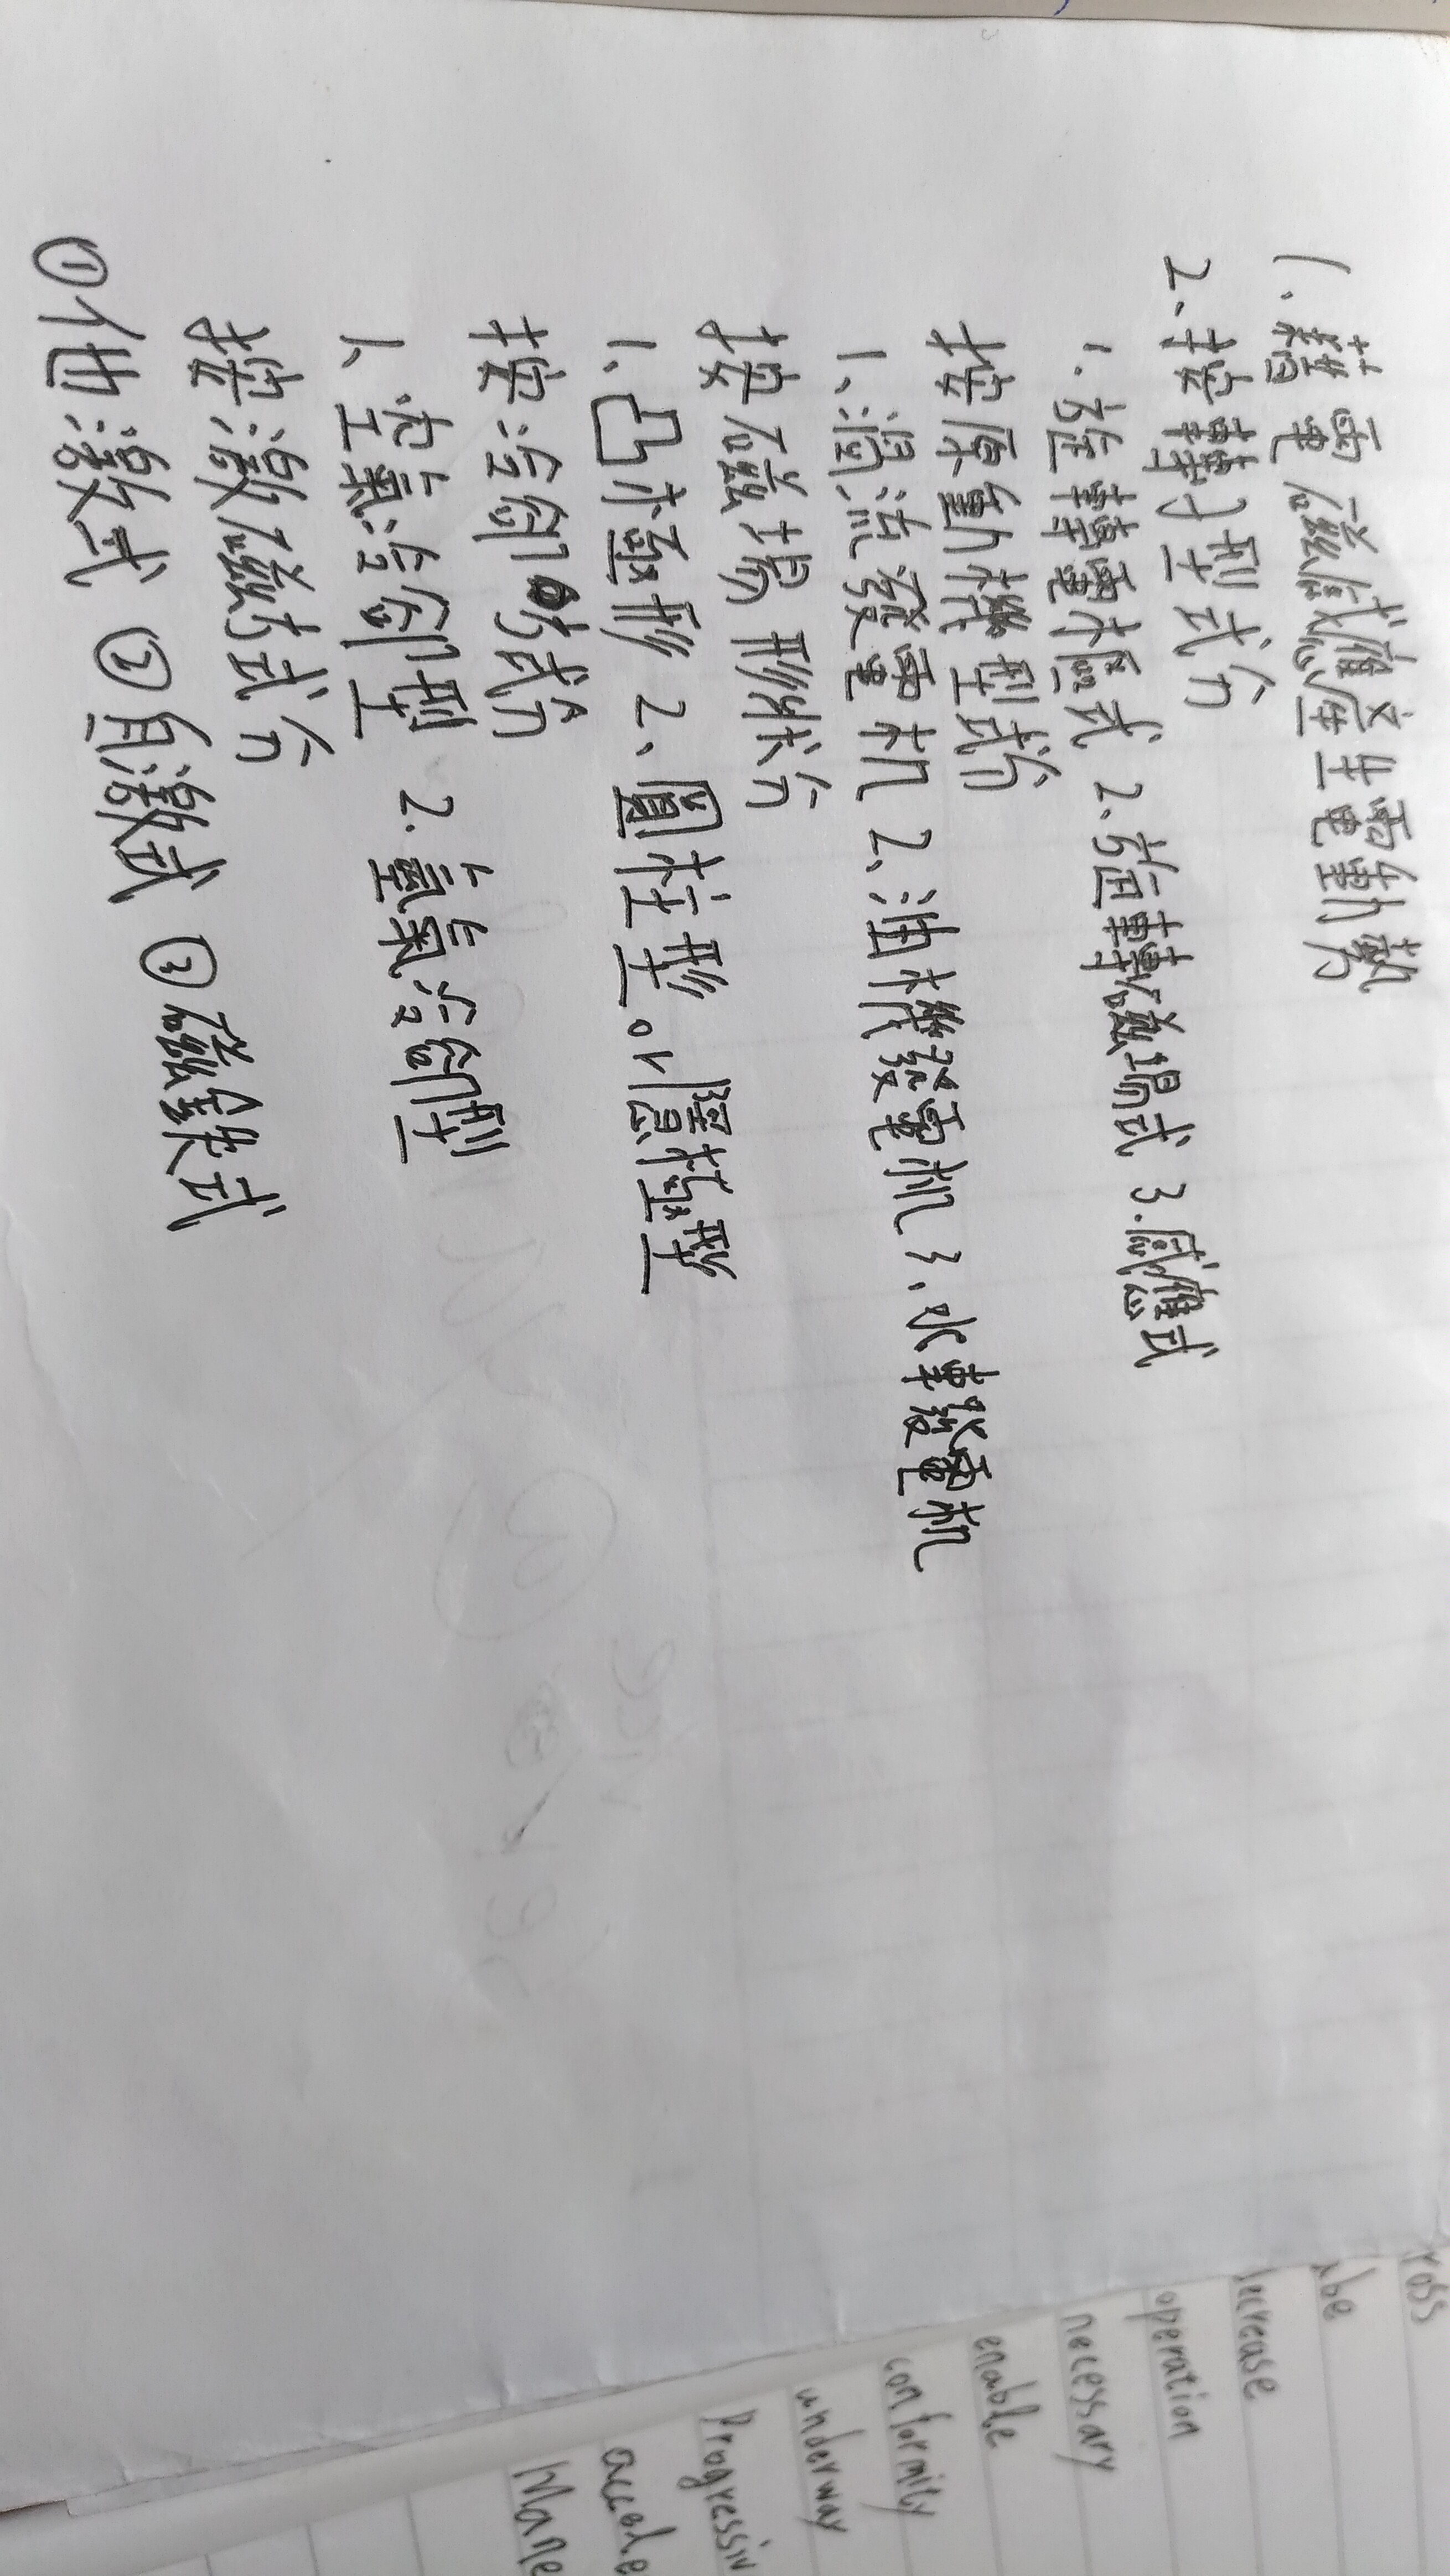 1、藉電磁感應產生電動勢
2、按轉子型式分
1. 旋轉電樞式 2. 旋轉磁場式 3. 感應式
按原動機型式分
1、渦流發電机 2、油機發電机 3. 水車發電机
按磁場形狀分
1、凸極形 2、圓柱型 or 隱極型
按冷卻方式分
1、空氣冷卻型 2. 氫氣冷卻型
按激磁方式分
①他激式 ②自激式 ③磁鐵式
ross
decrease
operation
necessary
enable
conformity
underway